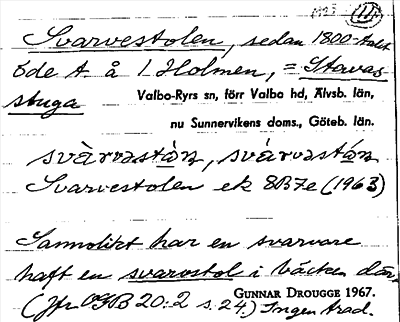 (11)
Svarvestolen, sedan 1800-talet
öde t å 1 Holmen, = Stavas-
stuga
Valbo-Ryrs sn, förr Valbo hd, Älvsb. län,
nu Sunnervikens doms., Göteb. län.
svàrvəstán, svárvəstán
Svarvestolen ek 8B7e (1963)
Sannolikt har en svarvare
haft en svarvstol i bäcken där.
(Jfr OGB 20:2 s. 24.) Ingen trad.
GUNNAR DROUGGE 1967.